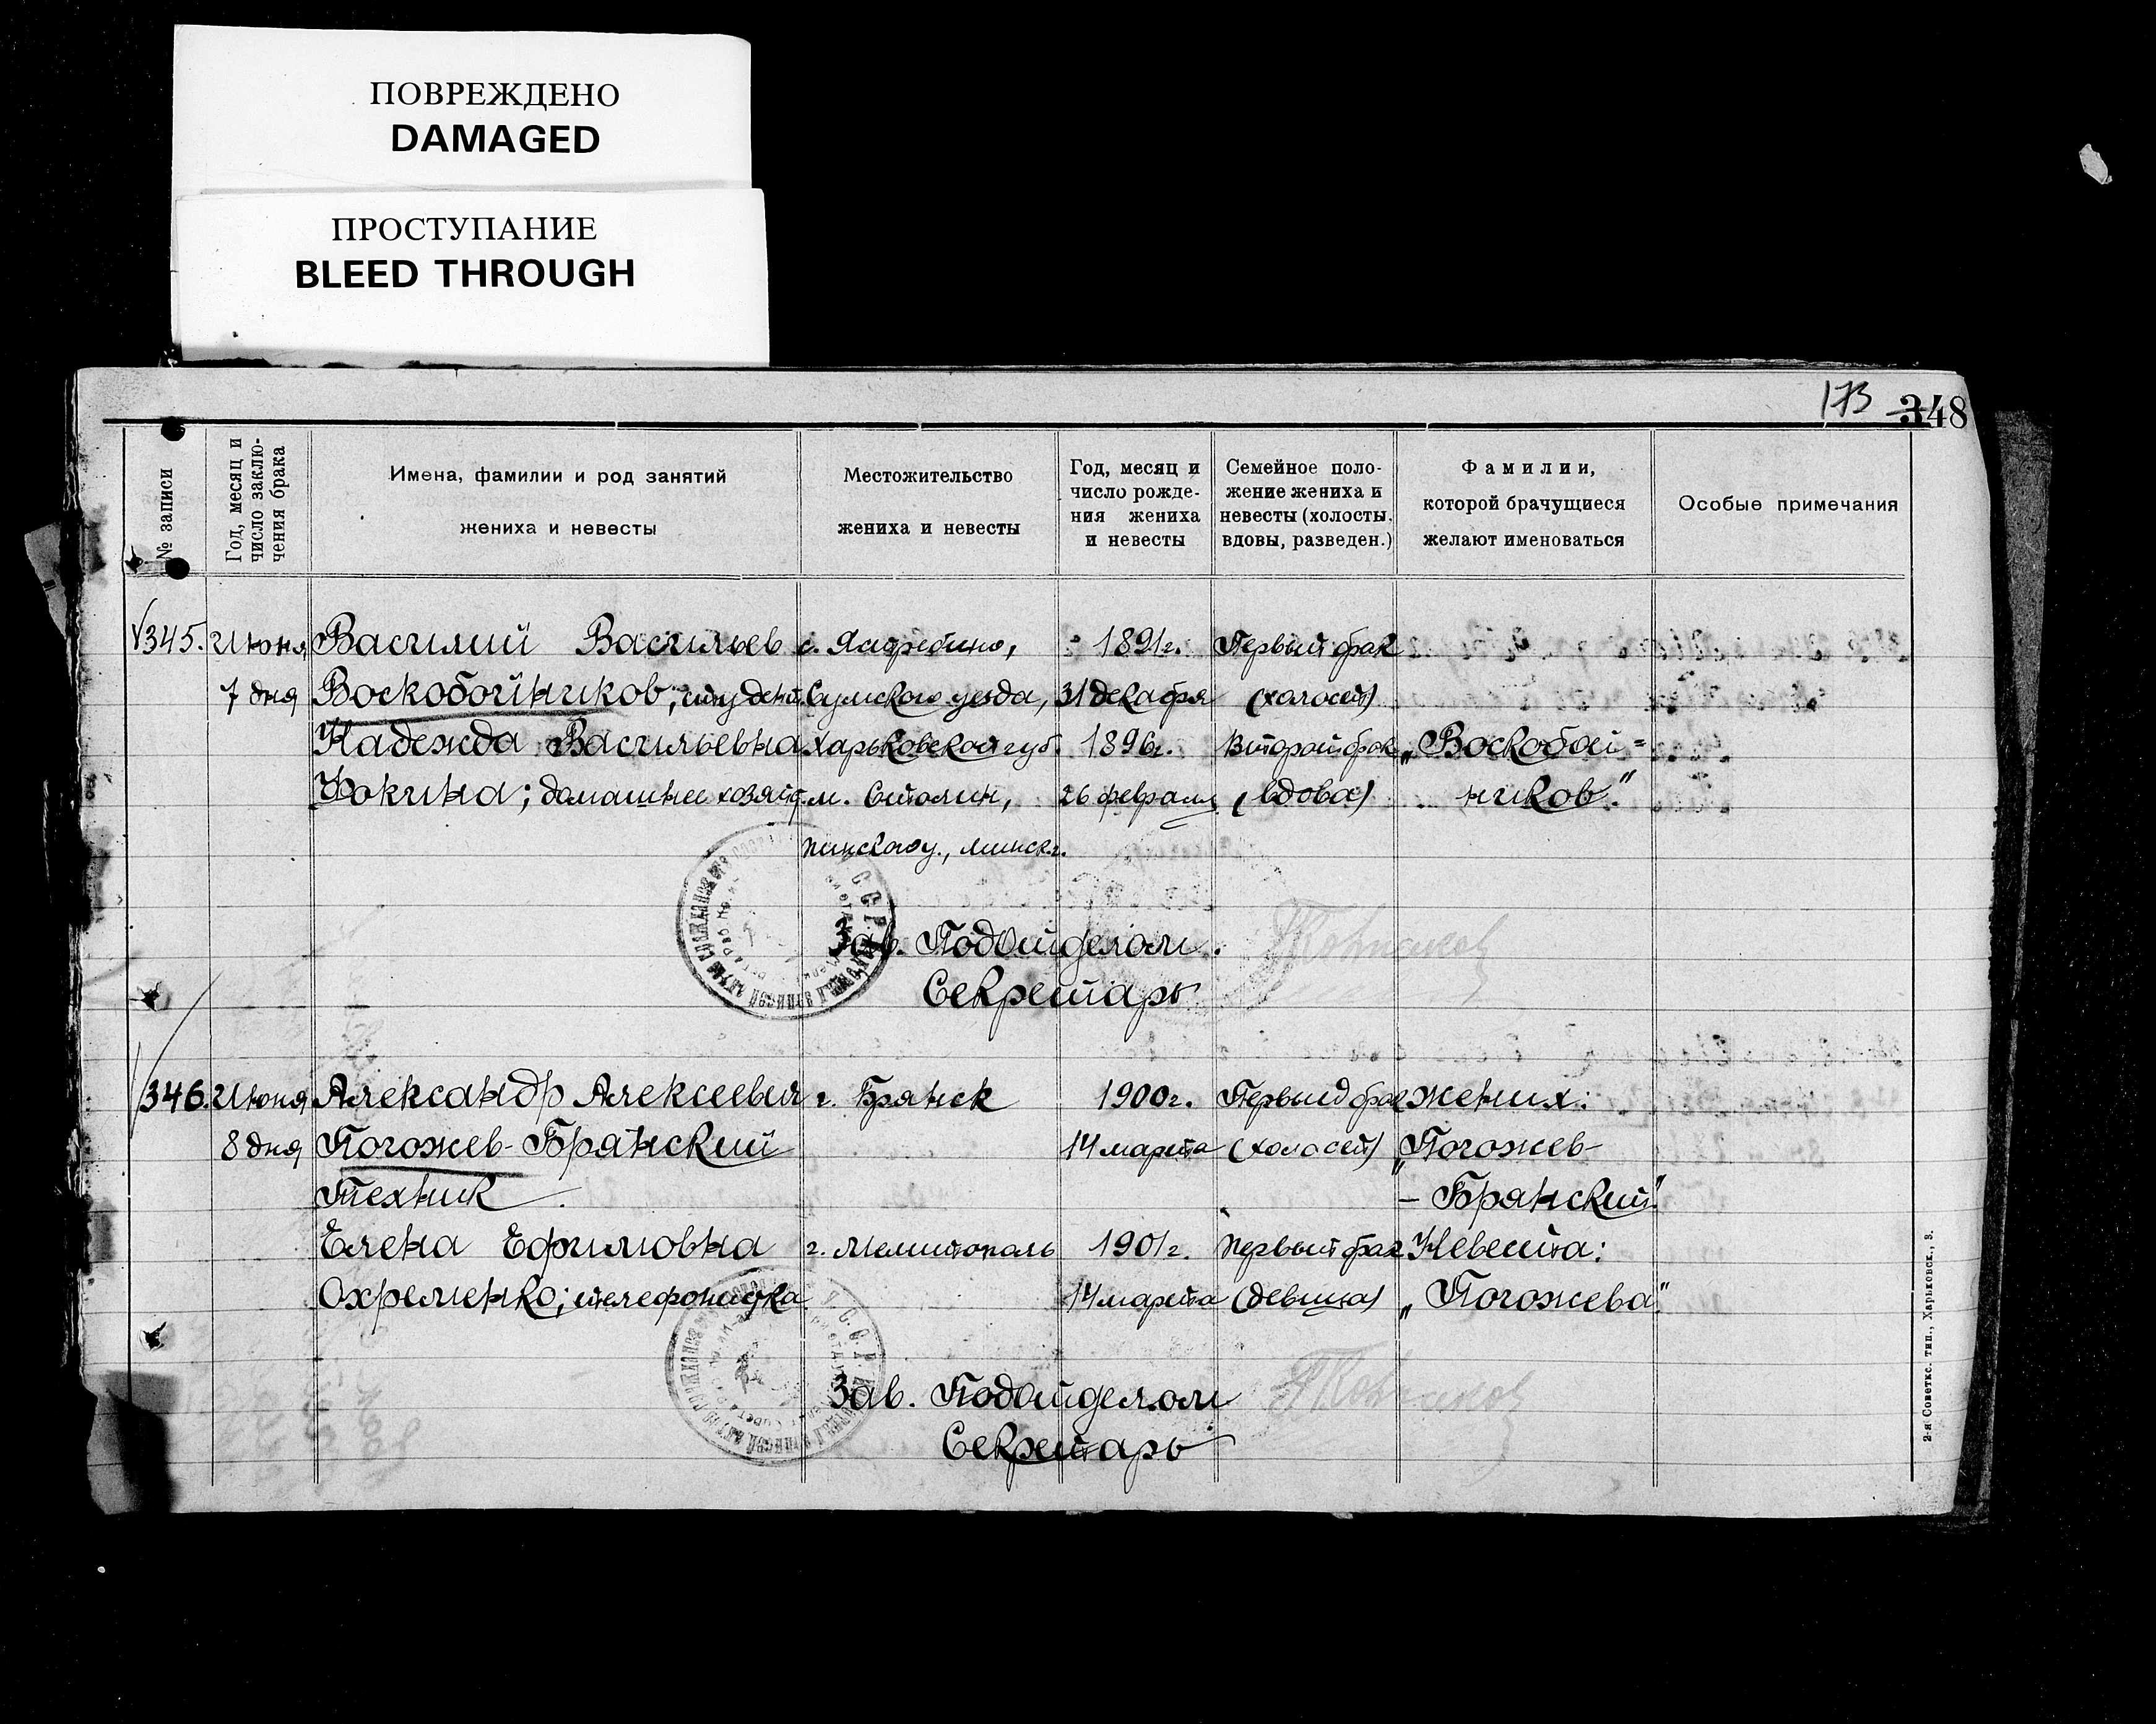 ПОВРЕЖДЕНО
DAMAGED
ПРОСТУПАНИЕ
BLEED THROUGH
173 348
№ записи
Год, месяц и
число заклю-
чения брака
Имена, фамилии и род занятий
жениха и невесты
Местожительство
жениха и невесты
Год, месяц и
число рожде-
ния жениха
и невесты
Семейное поло-
жение жениха и
невесты (холосты,
вдовы, разведен.)
Фамилии,
которой брачущиеся
желают именоваться
Особые примечания
345. Июня Василий Васильев с. Ястребино, 1891г. Первый брак
7 дня Воскобойников; студент. Сумского уезда, 31 декабря (холост)
Надежда Васильевна Харьковской губ. 1896г. Второй брак „Воскобой=
Фокина; домашнее хозяйс. м. Столин, 26 февраля (вдова) ников."
Пинского у., Минск. г.
Зав. Подотделом.
Секретарь
346. Июня Александр Алексеевич г. Брянск 1900г. Первый брак Жених:
8 дня Погожев-Брянский 14 марта (холост) „Погожев-
Техник - Брянский."
Елена Ефимовна г. Мелитополь 1901г. Первый брак Невеста:
Охременко; телефонистка 14 марта (девица) „Погожева."
Зав. Подотделом
Секретарь
2-я Советск. тип., Харьковск., 3.